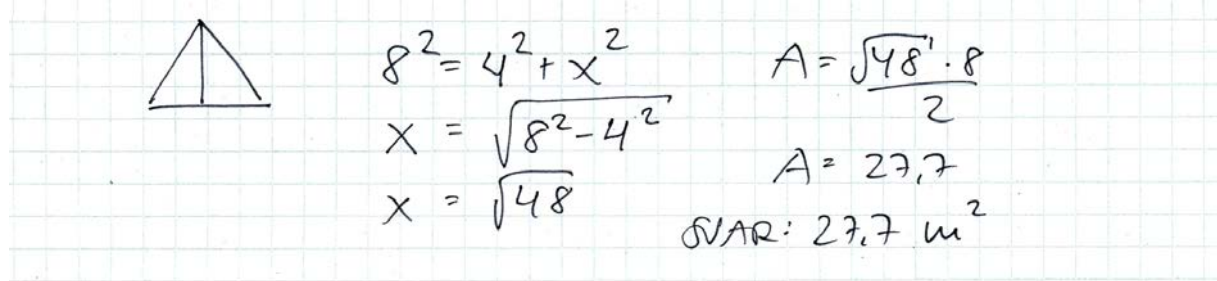 8² = 4² + x²
x = √(8² - 4²)
x = √48
A = √48 · 8 / 2
A = 27,7
SVAR: 27,7 m²